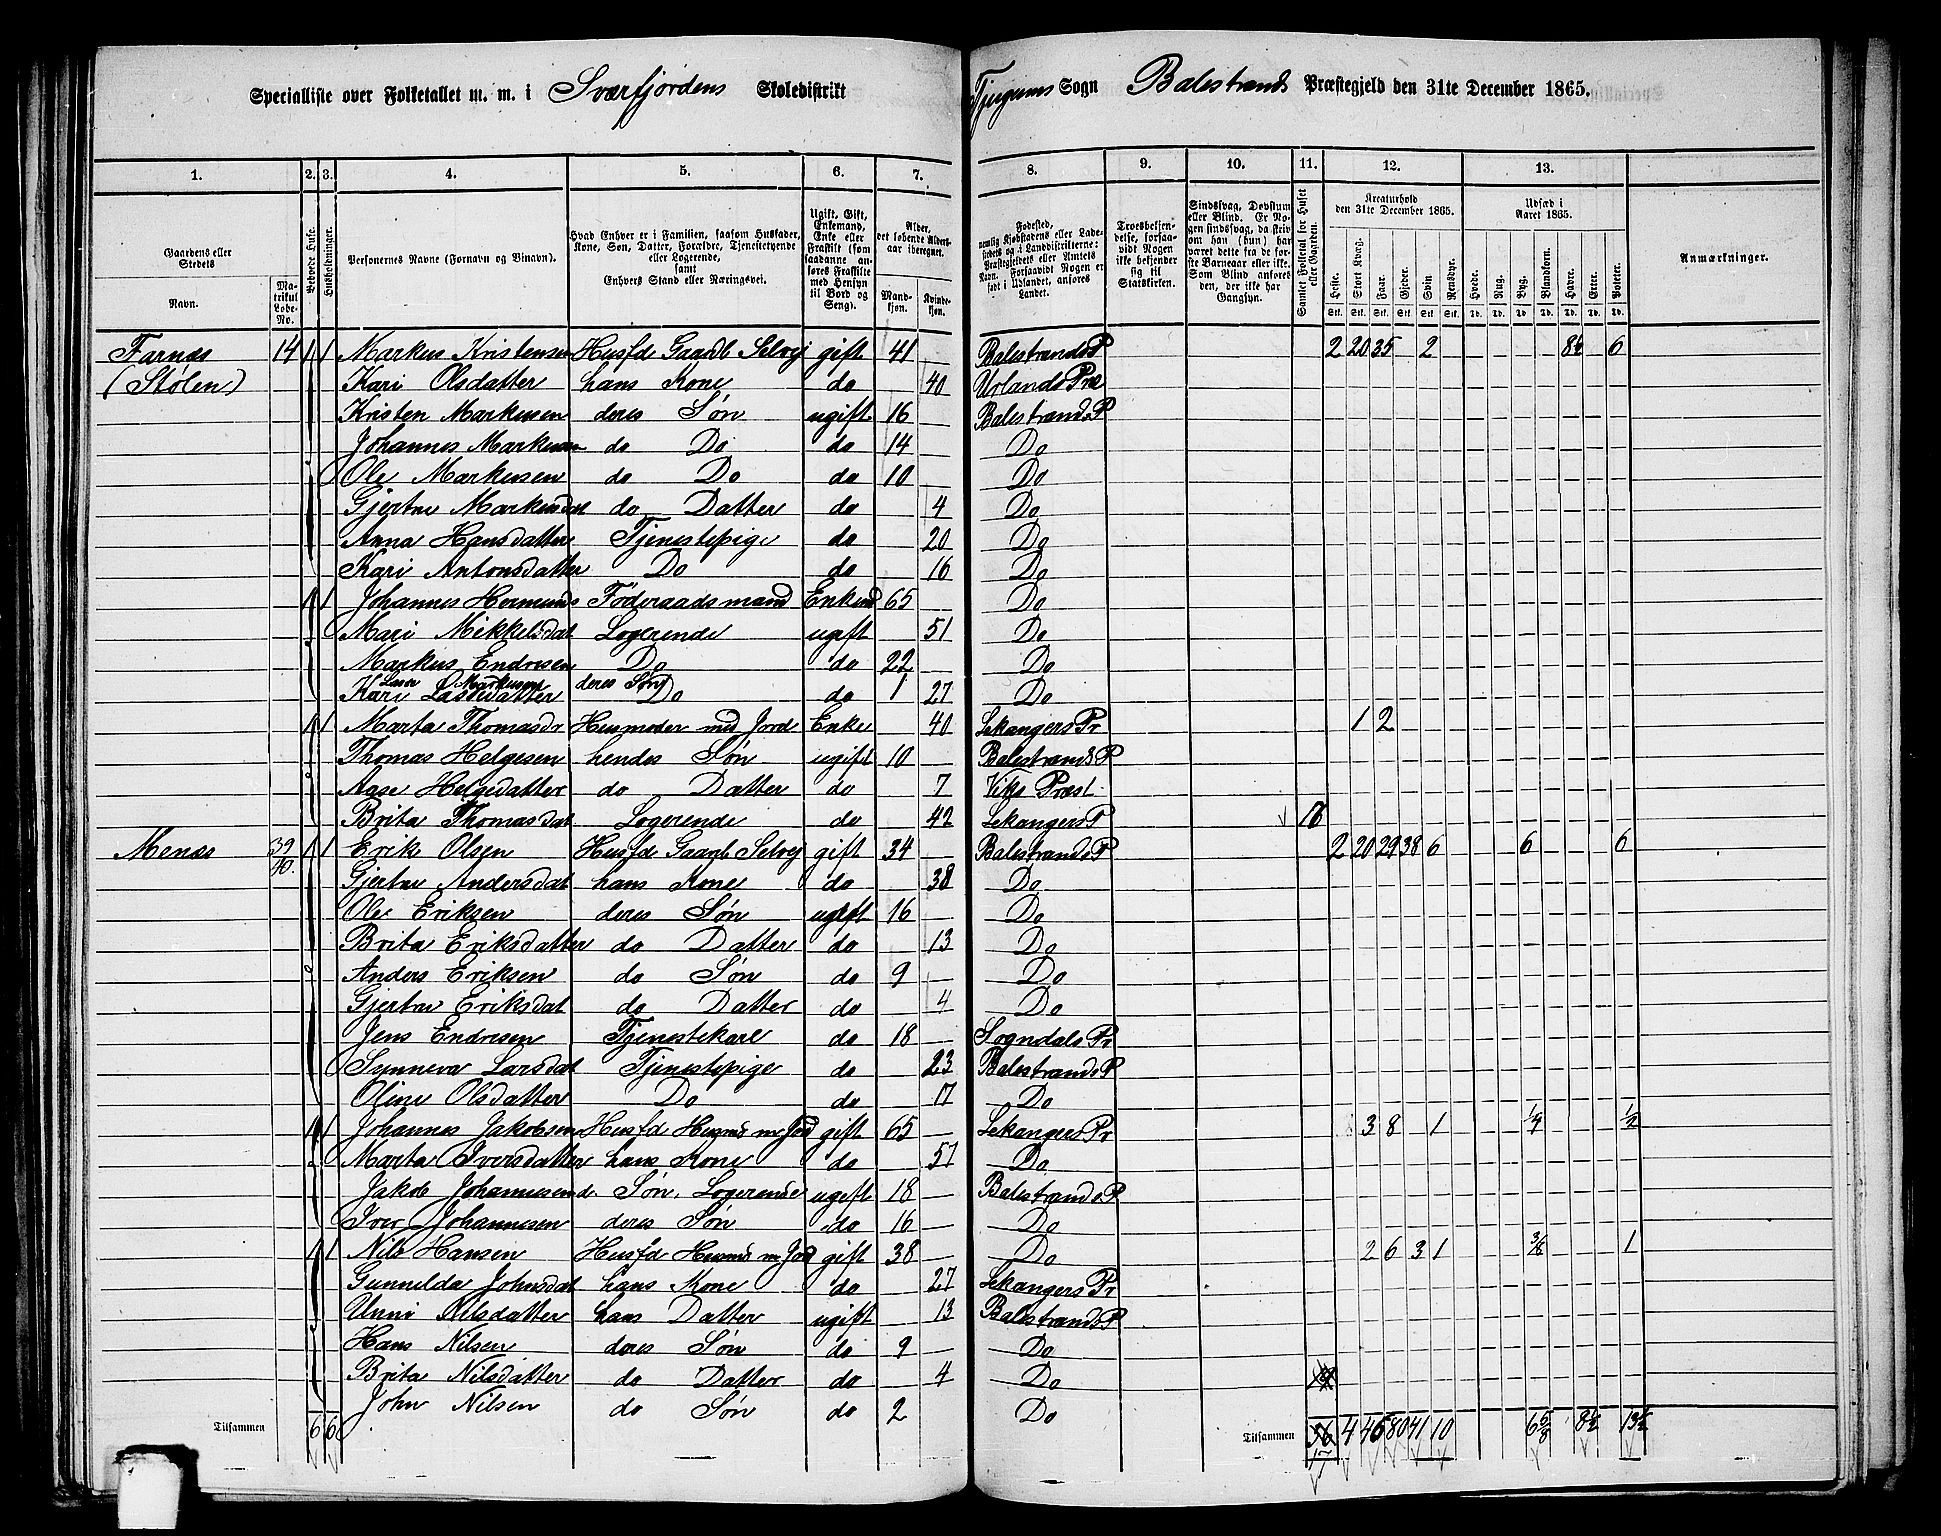 Specialliste over Folketallet m. m. i Sværfjordens Skoledistrikt Tjugums Sogn Balestrands Præstegjeld den 31te December 1865.
1. 2. 3. 4. 5. 6. 7. 8. 9. 10. 11. 12. 13.
Gaardens eller Stedets
Navn. Matrikul Løbe-No.
Beboede Huse.
Husholdninger.
Personernes Navne (Fornavn og Binavn).
Hvad Enhver er i Familien, saasom Husfader, Kone, Søn, Datter, Forældre, Tjenestetyende eller Logerende, samt Enhvers Stand eller Næringsvei.
Ugift, Gift, Enkemand, Enke eller Fraskilt (som saadanne anføres Fraskilte med Hensyn til Bord og Seng).
Alder, det løbende Alders-aar iberegnet.
Mandkjøn. Kvindekjøn.
Troesbekjendelse, forsaavidt Nogen ikke bekjender sig til Statskirken.
Samlet Folketal for Huset eller Gaarden.
Kreaturhold den 31te December 1865.
Heste. Stort Kvæg. Faar. Gjeder. Svin Rensdyr.
Udsæd i Aaret 1865.
Hvede. Rug. Byg. Blandkorn. Havre. Erter. Poteter.
Anmærkninger.
Farnæs 14 1 1 Markus Kristensen Husfd Gaardb Selvej gift 41 Balestrands P 2 20 35 2 8½ 6
(Stølen) Kari Olsdatter hans Kone do 40 Urlands Præ
Kristen Markusen deres Søn ugift 16 Balestrands P
Johannes Markusen do Do do 14 Do
Ole Markusen do Do do 10 Do
Gjertru Markusdat do Datter do 4 Do
Anna Hansdatter Tjenestepige do 20 Do
Kari Antonsdatter Do do 16 Do
1 1 Johannes Hermunds Føderaadsmand Enkem 65 Do
Mari Mikkelsdat Logerende ugift 51 Do
Markus Endresen Do do 22 Do
Lasse Markusen deres Søn 1
Kari Lassedatter Do do 27 Do
1 1 Marta Thomasdr Husmoder med Jord Enke 40 Lekangers Pr 1 2
Thomas Helgesen hendes Søn ugift 10 Balestrands P
Aase Helgedatter do Datter do 7 Viks Præst.
Brita Thomasdat Logerende do 42 Lekangers P
Menæs 39/40. 1 1 Erik Olsen Husfd Gaardb Selvej gift 34 Balestrands P 2 20 29 38 6 6 6
Gjertru Andersdat hans Kone do 38 Do
Ole Eriksen deres Søn ugift 16 Do
Brita Eriksdatter do Datter do 13 Do
Anders Eriksen do Søn do 9 Do
Gjertru Eriksdat do Datter do 4 Do
Jens Endresen Tjenestekarl do 18 Sogndals Pr
Synneva Larsdat Tjenestepige do 23 Balestrands P
Oline Olsdatter Do do 17 Do
1 1 Johannes Jakobsen Husfd Husmd m Jord gift 65 Lekangers Pr 3 8 1 ¼ ½
Marta Iversdatter hans Kone do 57 Do
Jakob Johannesen d. Søn, Logerende ugift 18 Balestrands P
Iver Johannesen deres Søn do 16 Do
1 1 Nils Hansen Husfd Husmd m Jord gift 38 Do 2 6 3 1 3/8 1
Gunnilda Johnsdat hans Kone do 27 Lekangers Pr
Unni Nilsdatter hans Datter ugift 13 Balestrands P
Hans Nilsen deres Søn do 9 Do
Brita Nilsdatter do Datter do 4 Do
John Nilsen do Søn do 2 Do
Tilsammen 6 6 Tilsammen 36 4 46 80 41 10 6 5/8 8½ 13½